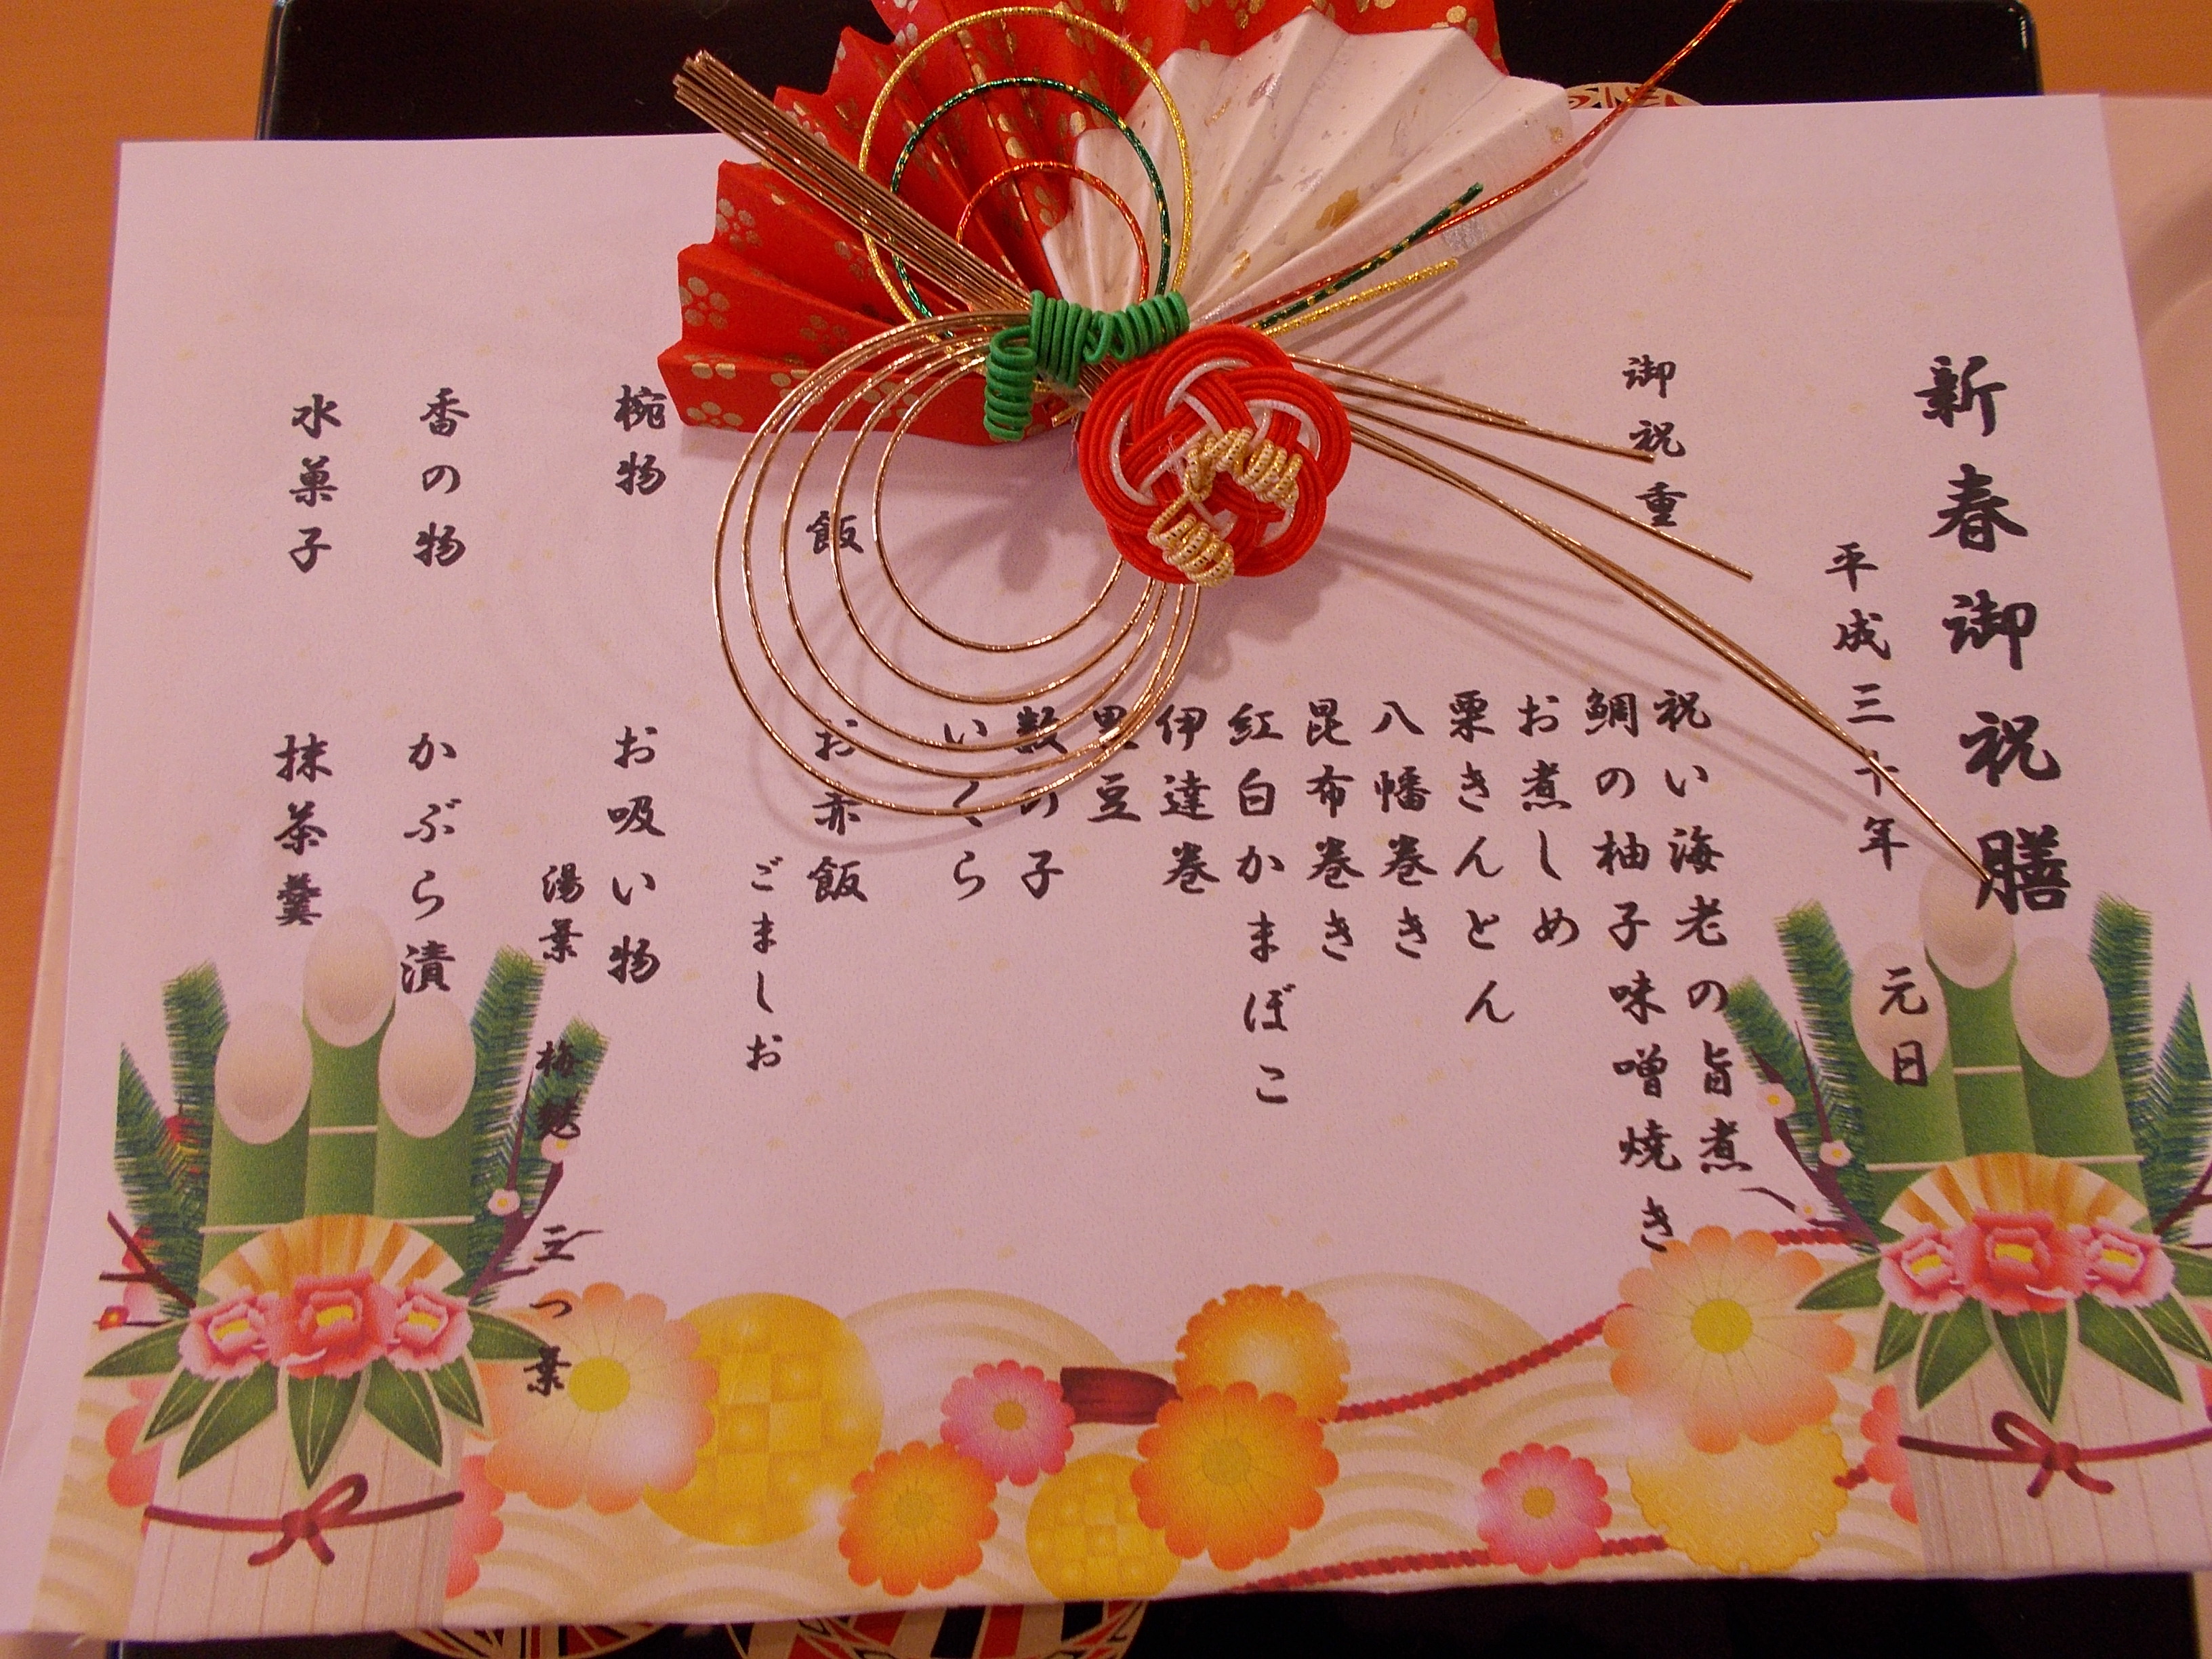 新春御祝膳
平成三十年 元日
御祝重
祝い海老の旨煮
鯛の柚子味噌焼き
お煮しめ
栗きんとん
八幡巻き
昆布巻き
紅白かまぼこ
伊達巻
黒豆
数の子
いくら
飯
お赤飯
ごましお
椀物
お吸い物
湯葉 梅麩 三つ葉
香の物
かぶら漬
水菓子
抹茶羹